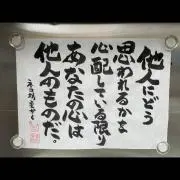 他人にどう
思われるかよ
心配している限り
あなたの心は
他人のものだ。